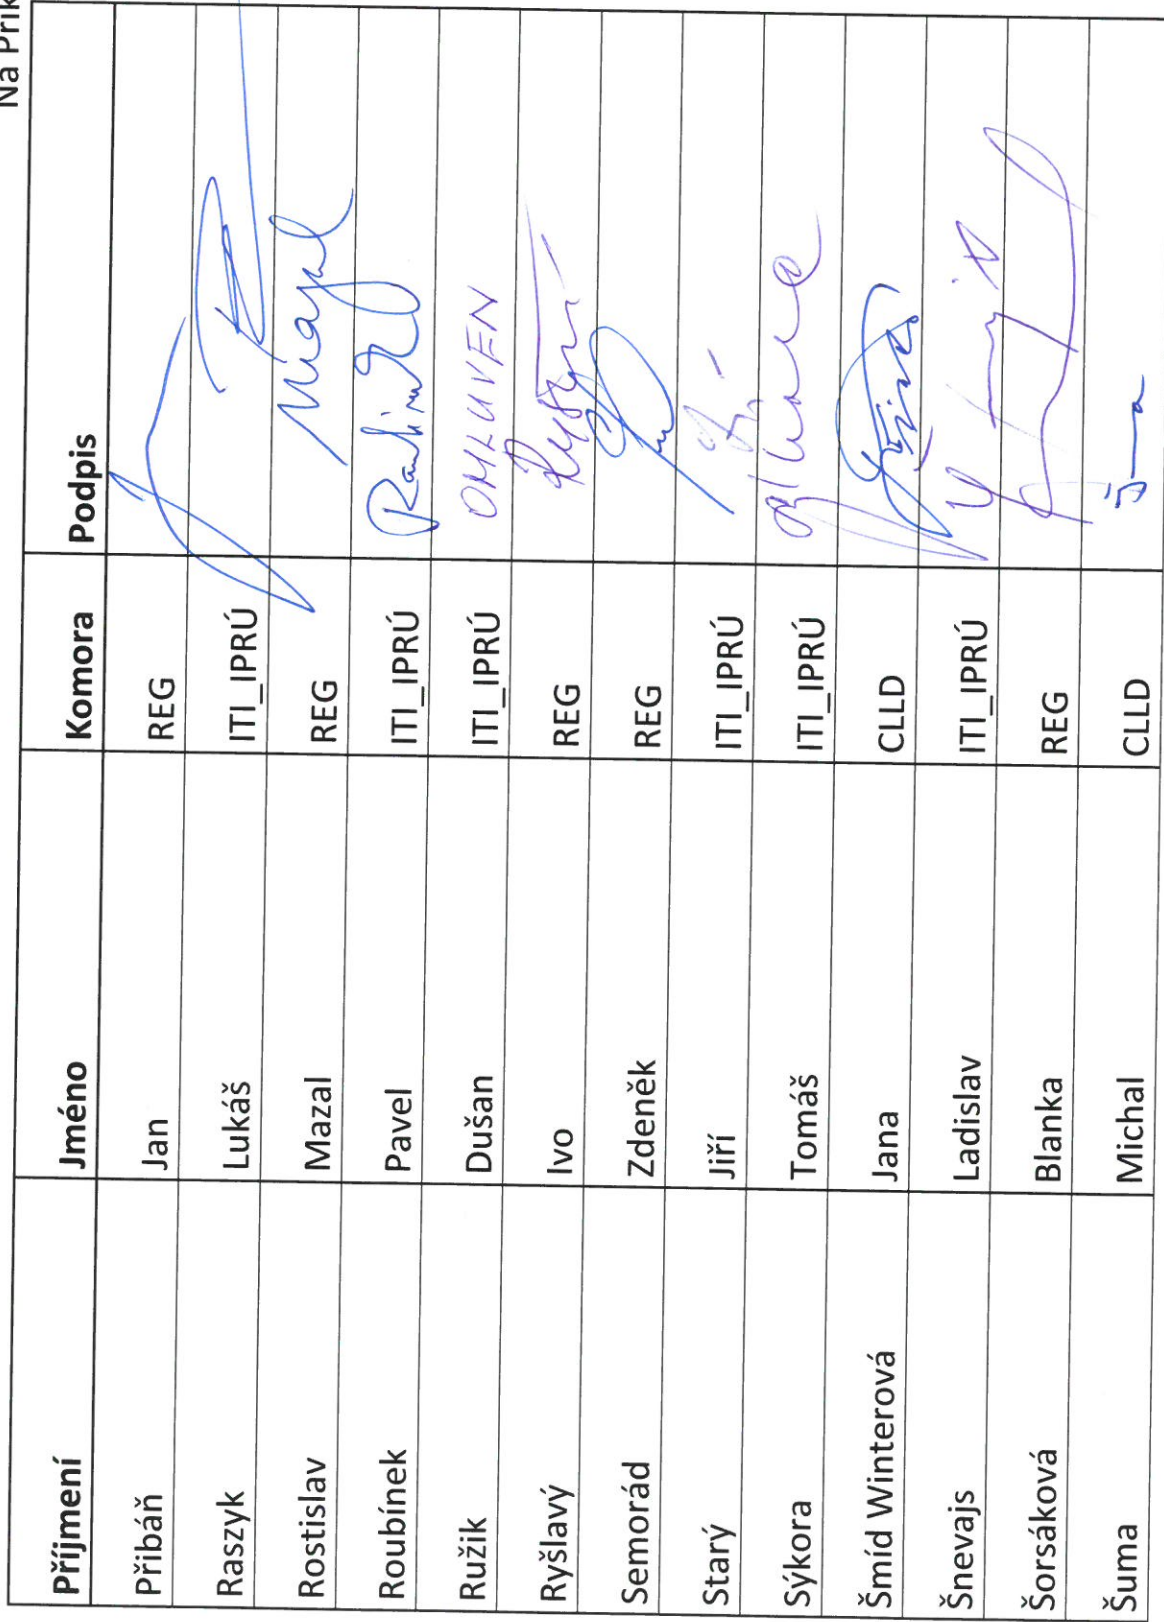 Na Přík
Příjmení Jméno Komora Podpis
Přibáň Jan REG
Raszyk Lukáš ITI_IPRÚ
Rostislav Mazal REG Mazal
Roubínek Pavel ITI_IPRÚ
Ružik Dušan ITI_IPRÚ OMLUVEN
Ryšlavý Ivo REG
Semorád Zdeněk REG
Starý Jiří ITI_IPRÚ
Sýkora Tomáš ITI_IPRÚ
Šmíd Winterová Jana CLLD
Šnevajs Ladislav ITI_IPRÚ
Šorsáková Blanka REG
Šuma Michal CLLD